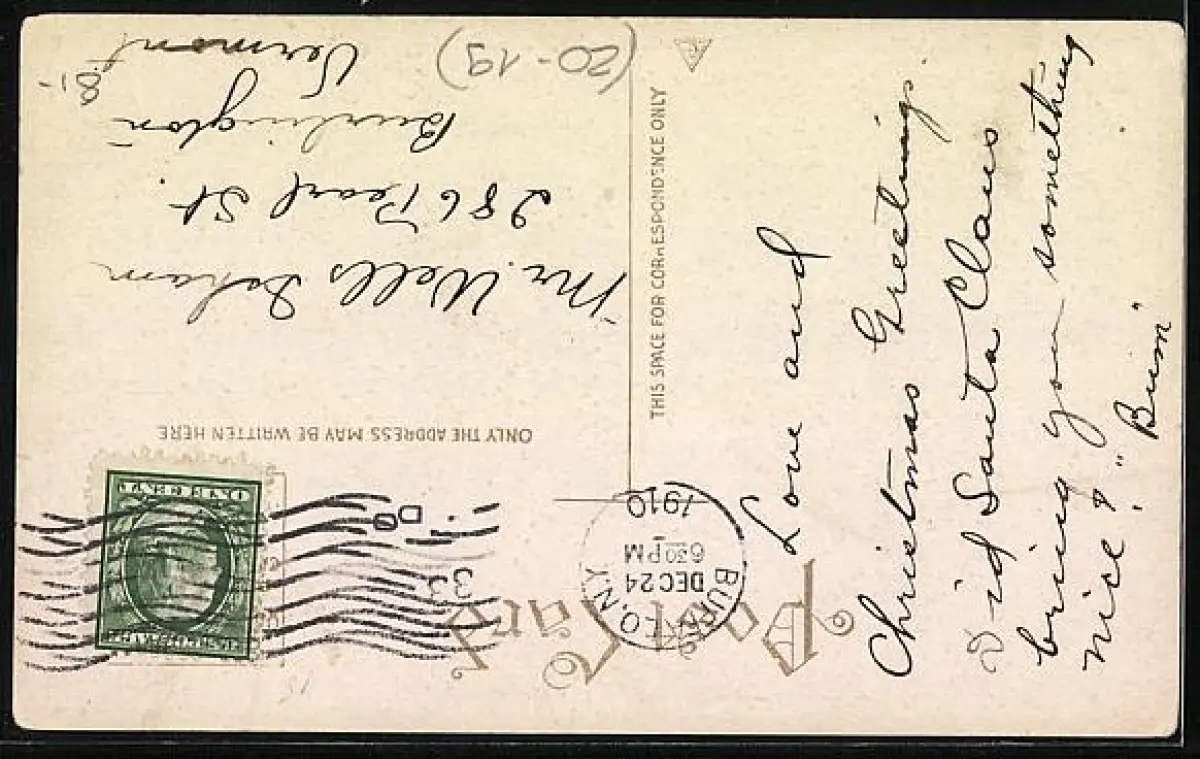 Post Card
BUFFALO, N.Y.
DEC 24
6 30 PM
1910
33
THIS SPACE FOR CORRESPONDENCE ONLY
ONLY THE ADDRESS MAY BE WRITTEN HERE
Love and
Christmas Greetings.
Did Santa Claus
bring you something
nice?
"Bum"
Mr. Wells
286 Pearl St.
Burlington
Vermont
(20-19)